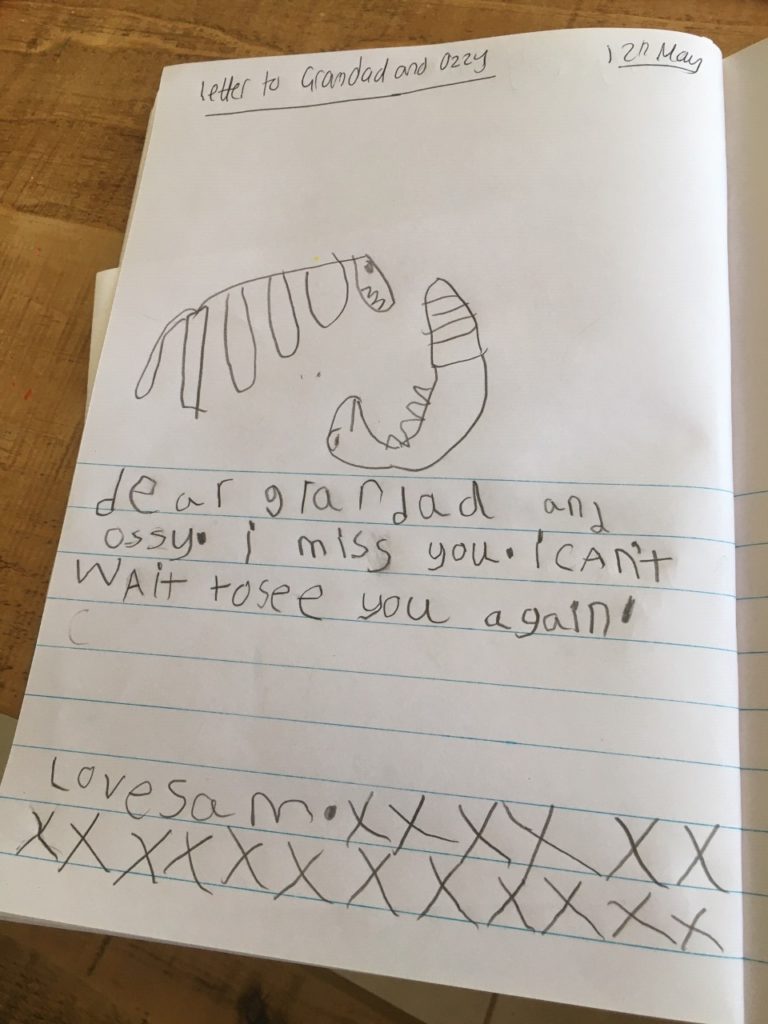 letter to Grandad and Ozzy
12th May
dear grandad and
ossy. i miss you. I CAn't
WAit tosee you again!
LoveSam. X X X X X X
X X X X X X X X X X X X